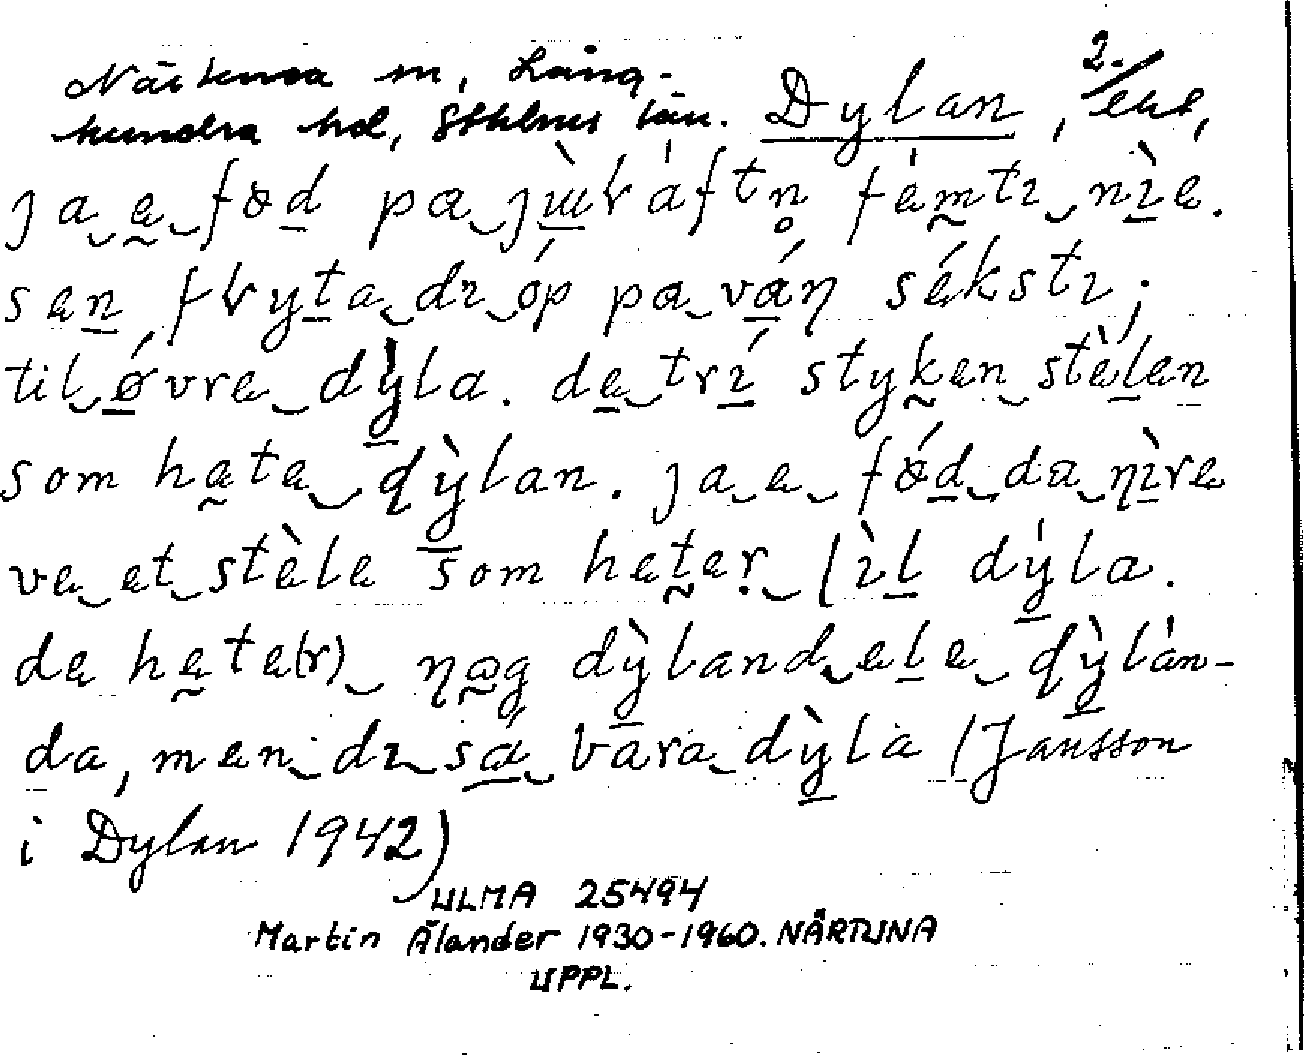 Närtuna sn, Lång-
hundra hd, Sthlms län. Dylan, 2. /eke,
ja e fød pa jɯl áftn̥ fémtɪ nìe.
sen flyta dɪ óp pa ván sékstɪ;
til ǿvre dỳla. de trɪ́ styken stèlen
som heta dỳlan. ja e fǿd da nìre
ve et stèle som heter lìl dýla.
de hete(r) nɷg dỳland ele dỳlan-
da, men dɪ sá bara dỳla (Jansson
i Dylan 1942)
ULMA 25494
Martin Ålander 1930-1960. NÄRTUNA
UPPL.